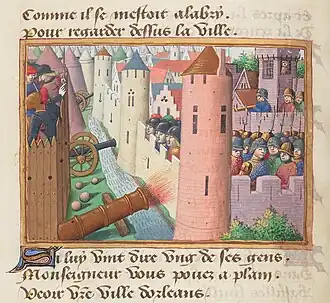 Comme il se mestoit alabry
Pour regarder dessus la ville.
Si luy vint dire ung de ses gens.
Monseigneur vous pouez a plain
Veoir vre ville dorleans